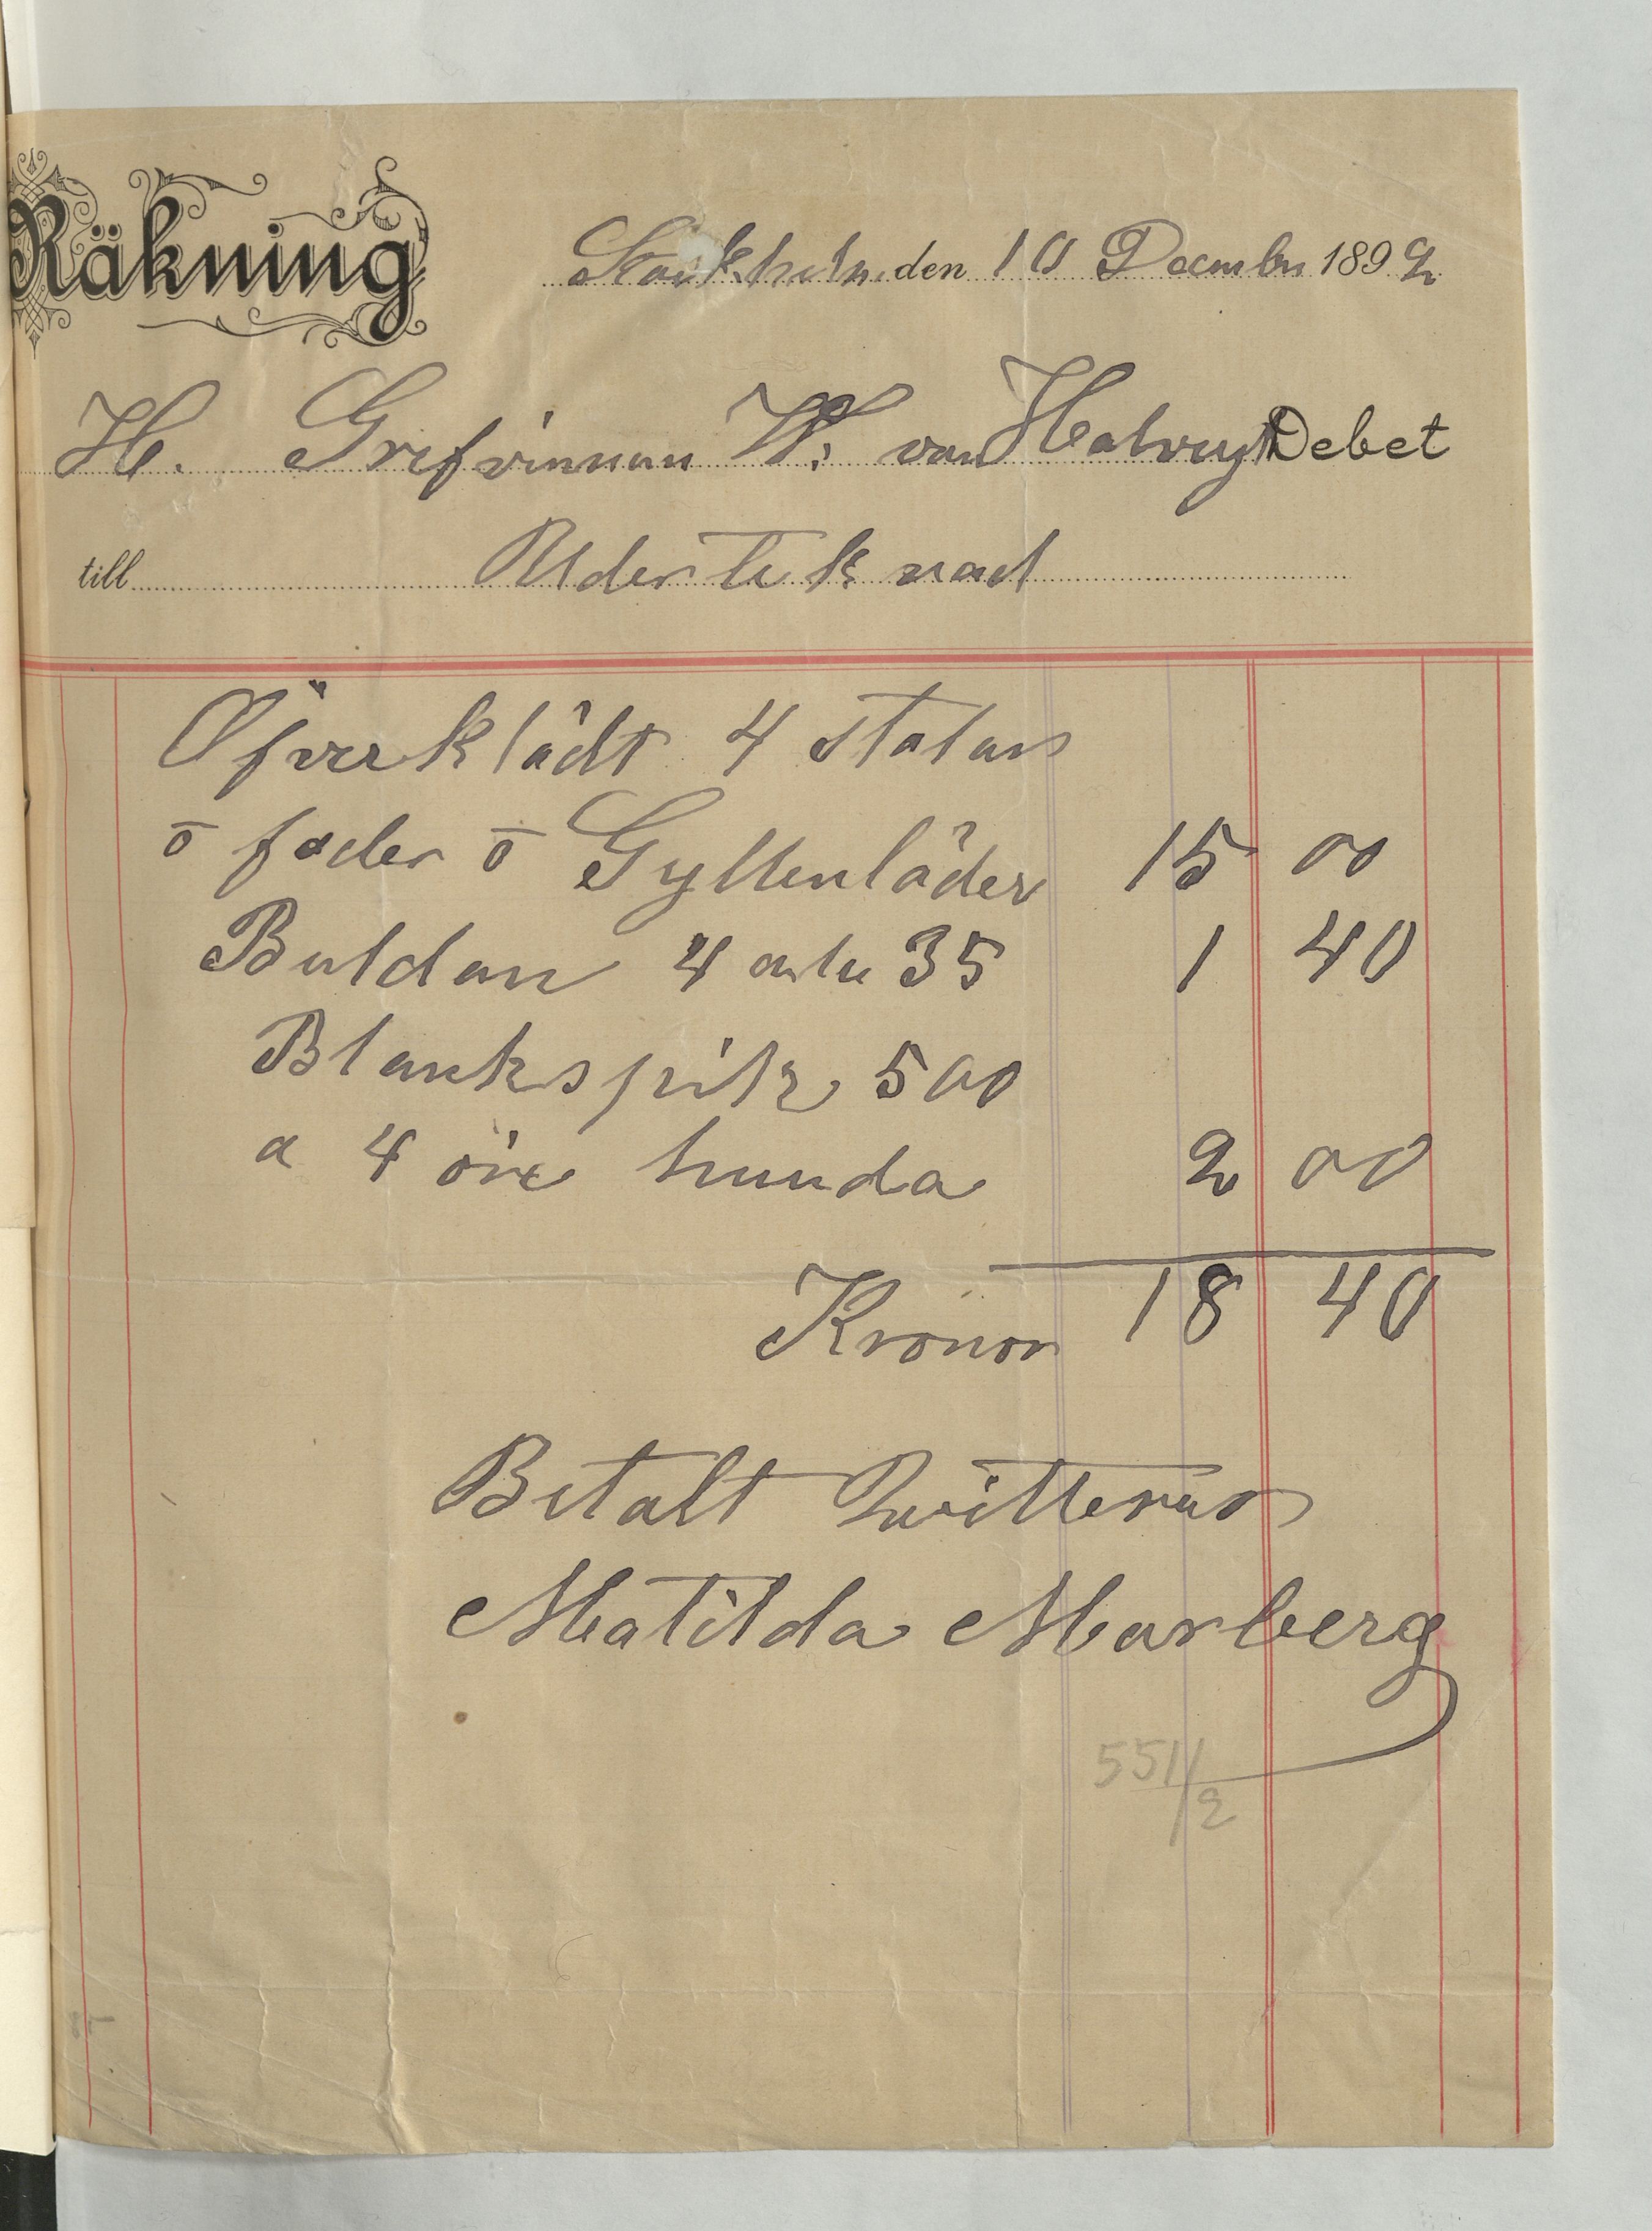 Räkning
Stockholm den 10 December 1892
H. Grefvinnan W. von Halvyl Debet
till Underteknad
Öfverklädt 4 stolar
o foder o Gyllenläder 15 00
Buldan 4 aln 35 1 40
Blankspik 500
a 4 öre hunda 2 00
Kronor 18 40
Betalt Qvitteras
Matilda Marberg
551/2